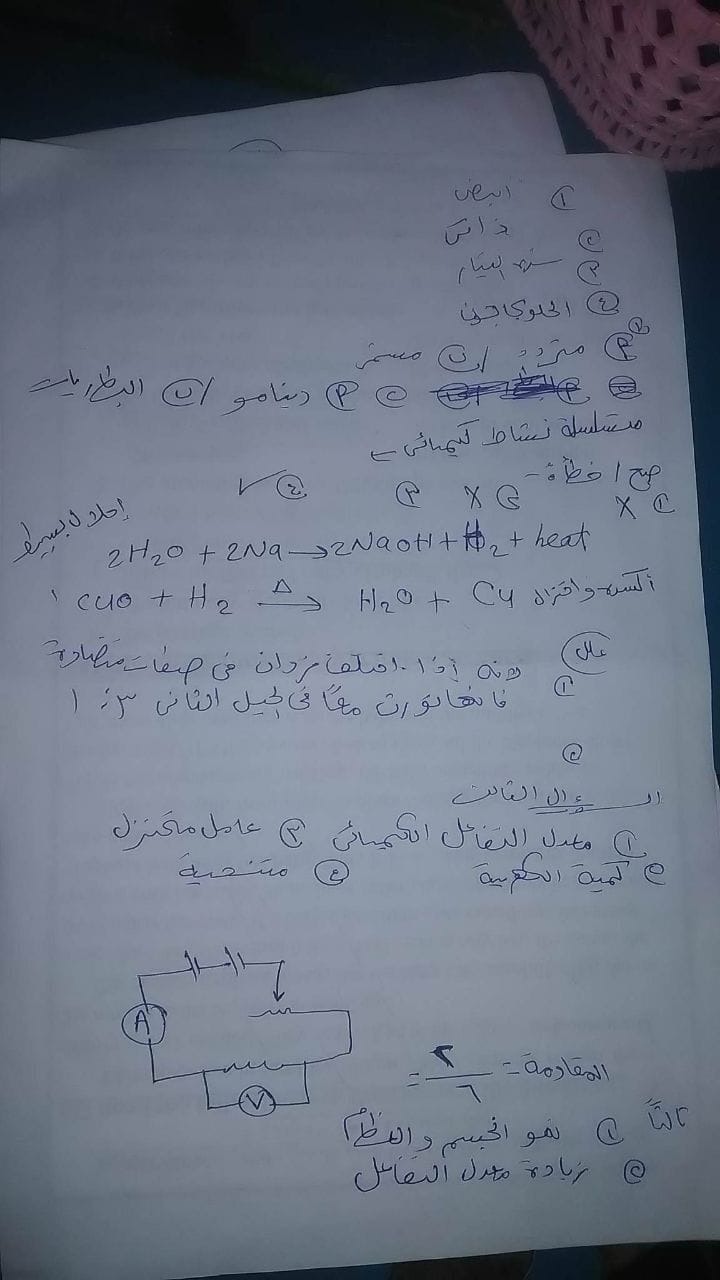 ① أبيض
② ذاتى
③ شدة التيار
④ الجلوكاجون
② Ⓟ متردد / ب مستمر
② Ⓟ دينامو / ب البطاريات
متسلسلة نشاط كيميائى
صح / خطأ :-
① X ② X ③ ④ ✓
2H₂O + 2Na → 2NaOH + H₂ + heat إحلال بسيط
CuO + H₂ →Δ H₂O + Cu أكسدة واختزال
علل
① لأنه إذا اختلف فردان فى صفات متضادة
فانها تورث معًا فى الجيل الثانى ٣ : ١
②
السؤال الثالث
① معدل التفاعل الكيميائى ③ عامل مختزل
② كمية الكهربية ④ متنحية
A
V
المقاومة = ٢/٦ =
ثالثًا ① نمو الجسم والعظام
② زيادة معدل التفاعل